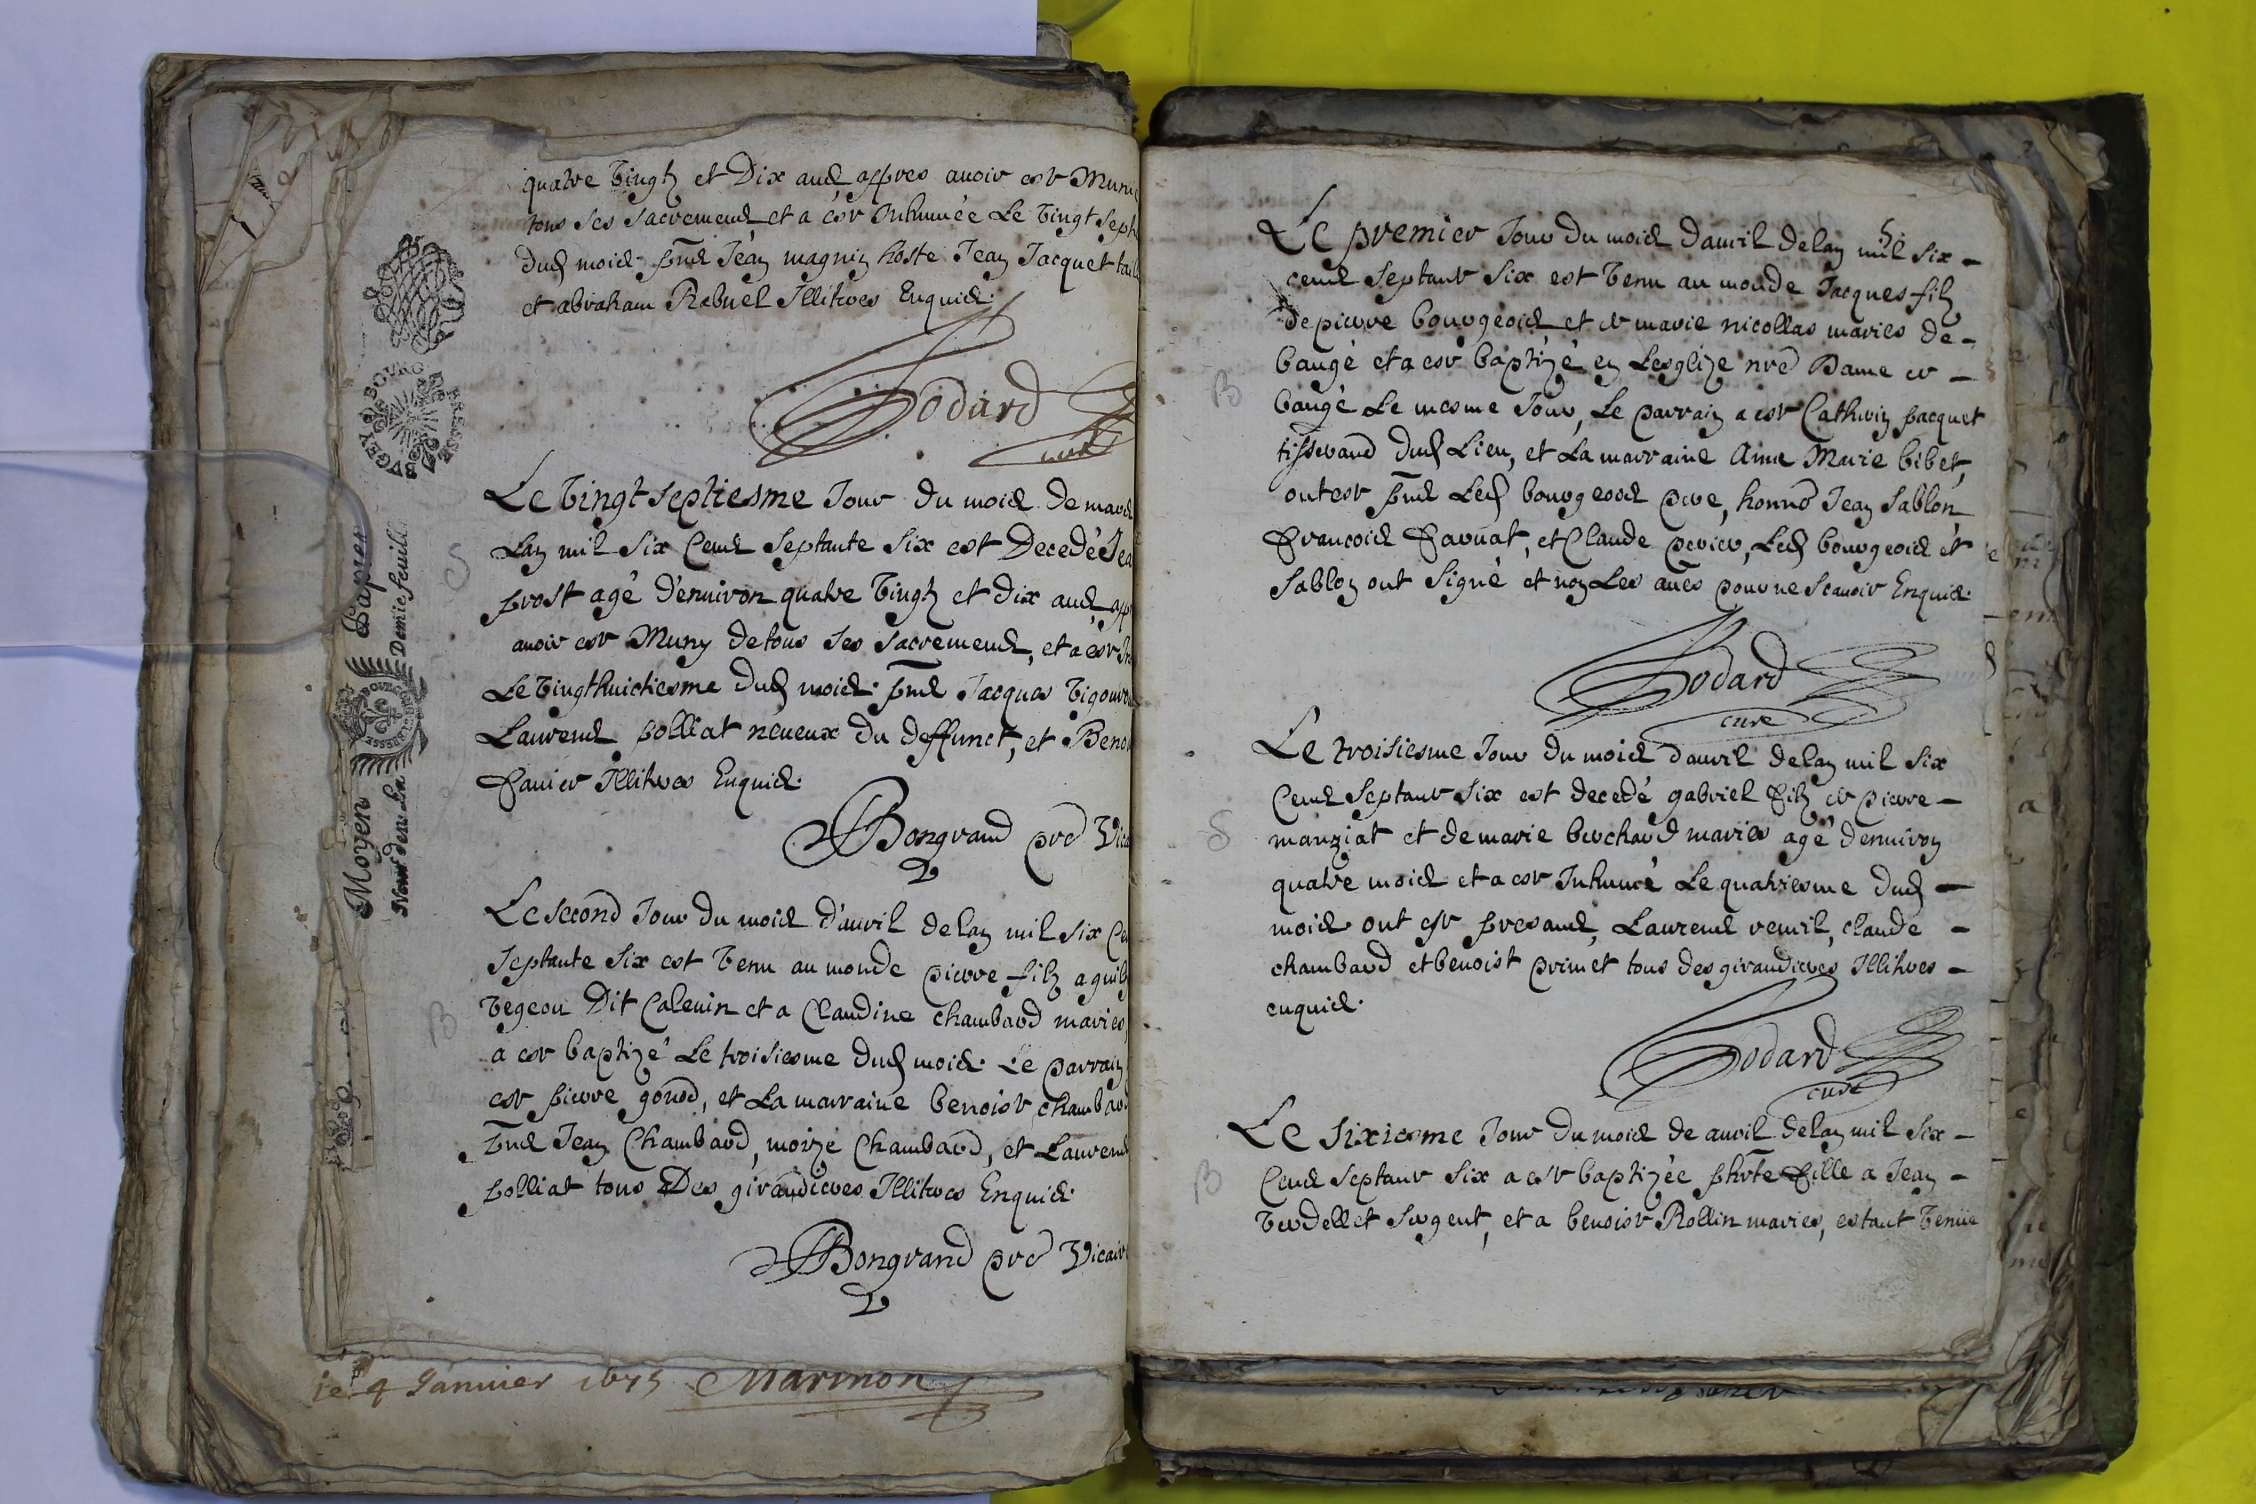 quatre vingtz et Dix ans appres avoir este Muni
tous ses sacremens et a este Inhumée Le vingt sept
dud moich pnt Jean magnin hoste Jean Jacquet
et abraham Rebuel Illitres Enquis
Godard
curé
Le vingt septiesme Jour du moich de mars
Lan mil six Cens Septante six est Decedé
prost agé d'enuiron quatre vingtz et dix ans
auoir este Muny de tous ses sacremens, et a este
Le vingthuictiesme dud moich pnt Jacques
Laurens polliat neueux du deffunct, et
Panier Illitres Enquis
Bongrand pre Vica
Le second Jour du moich d'auril de lan mil six
Septante six est venu au monde pierre filz a
vegeou Dit Caleuin et a Claudine chambard maries
a este baptizé Le troisiesme dud moich Le parrain
este pierre gonod, et La marraine benoiste chambard
pnt Jean Chambard, moize Chambard, et Laurens
polliat tous Des girandieres Illitres Enquis
Bongrand pre Vicair
Moyen Papier
Demie feuille
BVGEY BOVRG BRESSE
le 4 Januier 1675 Marinon
Le premier Jour du moich dauril de lan mil six
cens septante six est venu au monde Jacques filz
de pierre bourgeois et de marie nicollas maries de
baugé et a este baptizé en Lesglize nre Dame de
baugé Le mesme Jour, Le parrain a este Cathrin pacquet
tisserand dud Lieu, et La marraine Aime Marie bibet,
ont este pnt Led bourgeois pere, honno Jean Sablon
Francois Faruat, et Claude perier, Led bourgeois et
Sablon ont signé et non Les aues pour ne scauoir Enquis
Godard
curé
Le troisiesme Jour du moich dauril de lan mil six
Cens septante six est decedé gabriel filz de pierre
manziat et de marie berchard maries agé denuiron
quatre moich et a este Inhumé Le quatriesme dud
moich ont este presans, Laurens reuril, claude
chambard et benoist primet tous des girandieres Illitres
enquis
Godard
curé
Le sixiesme Jour du moich de auril de lan mil six
Cens septante six a este baptizée phrte fille a Jean
verdellet sergent, et a benoiste Rollin maries, estant venue